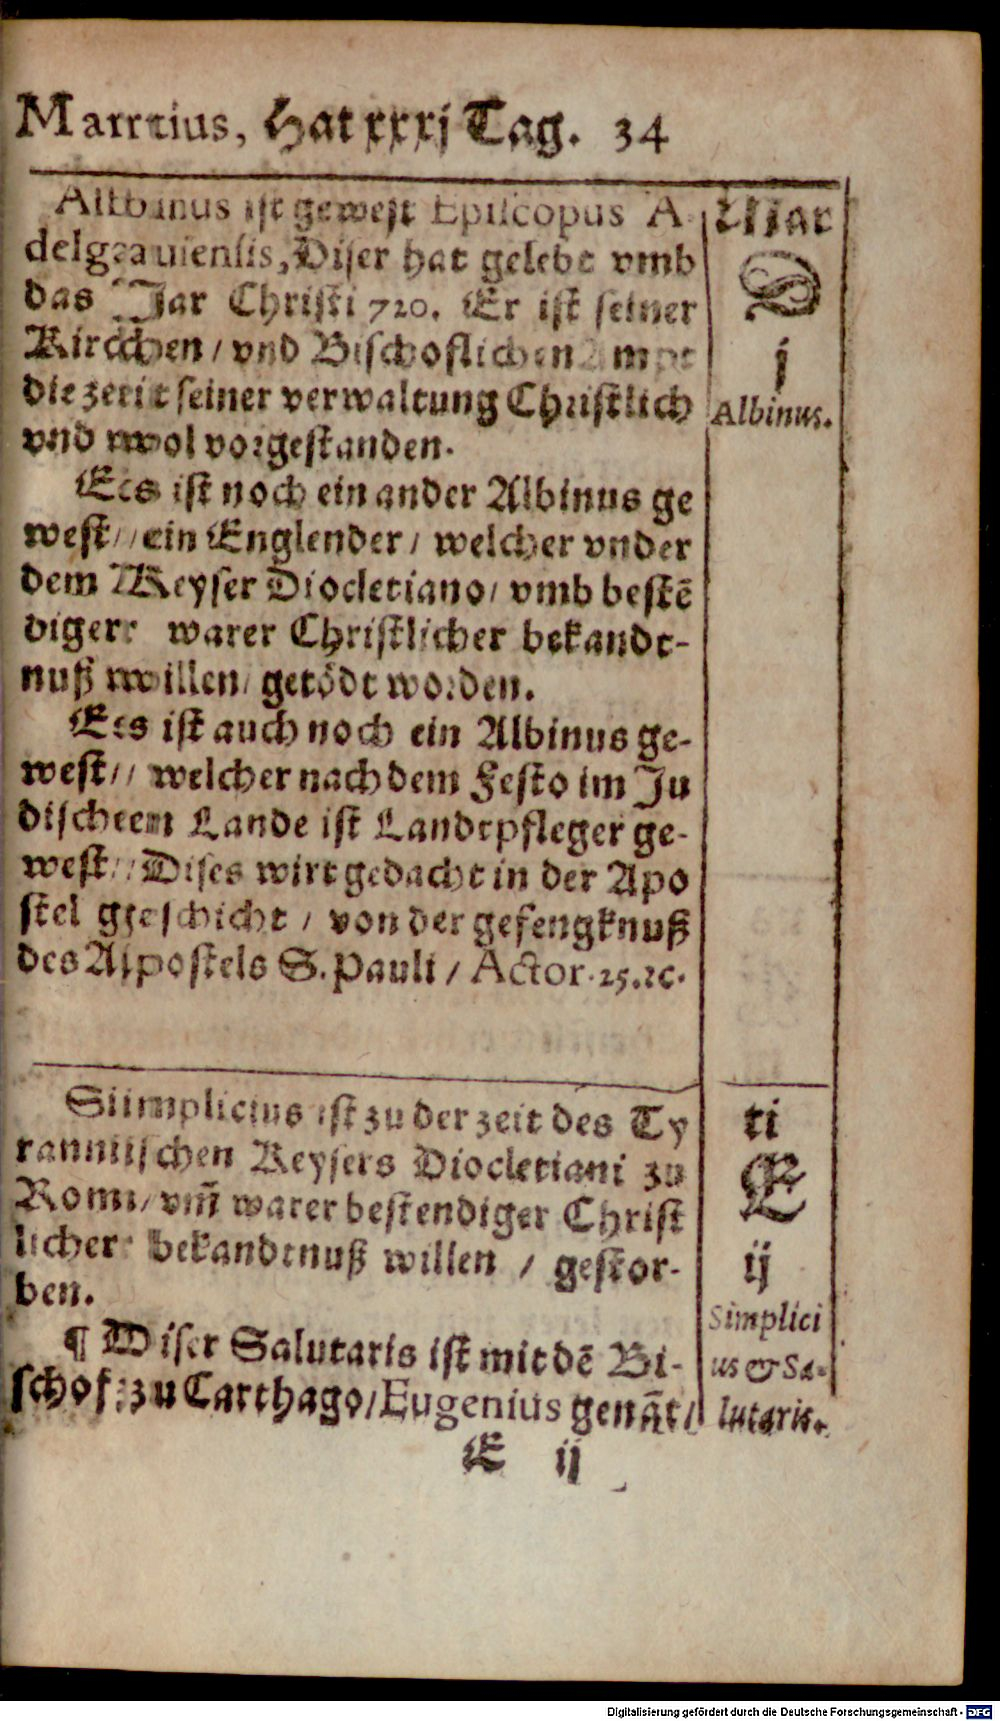 Martius, Hat xxxj Tag. 34
Albinus ist gewest Episcopus A-
delgrauiensis, Diser hat gelebt vmb
das Jar Christi 720. Er ist seiner
Kirchen / vnd Bischoflichen Ampt
die zeit seiner verwaltung Christlich
vnd wol vorgestanden.
Es ist noch ein ander Albinus ge
west / ein Englender / welcher vnder
dem Keyser Diocletiano / vmb bestē
diger warer Christlicher bekandt-
nuß willen / getödt worden.
Es ist auch noch ein Albinus ge-
west / welcher nach dem Festo im Ju
dischem Lande ist Landtpfleger ge-
west / Dises wirt gedacht in der Apo
stel geschicht / von der gefengknuß
des Apostels S. Pauli / Actor. 25. ꝛc.
Mar
D
j
Albinus.
Simplicius ist zu der zeit des Ty
rannischen Keysers Diocletiani zu
Rom / vm̄ warer bestendiger Christ
licher bekandtnuß willen / gestor-
ben.
¶ Diser Salutaris ist mit dē Bi-
schof zu Carthago / Eugenius genāt /
ti
E
ij
Simplici
us & Sa-
lutaris.
E ij
Digitalisierung gefördert durch die Deutsche Forschungsgemeinschaft - DFG